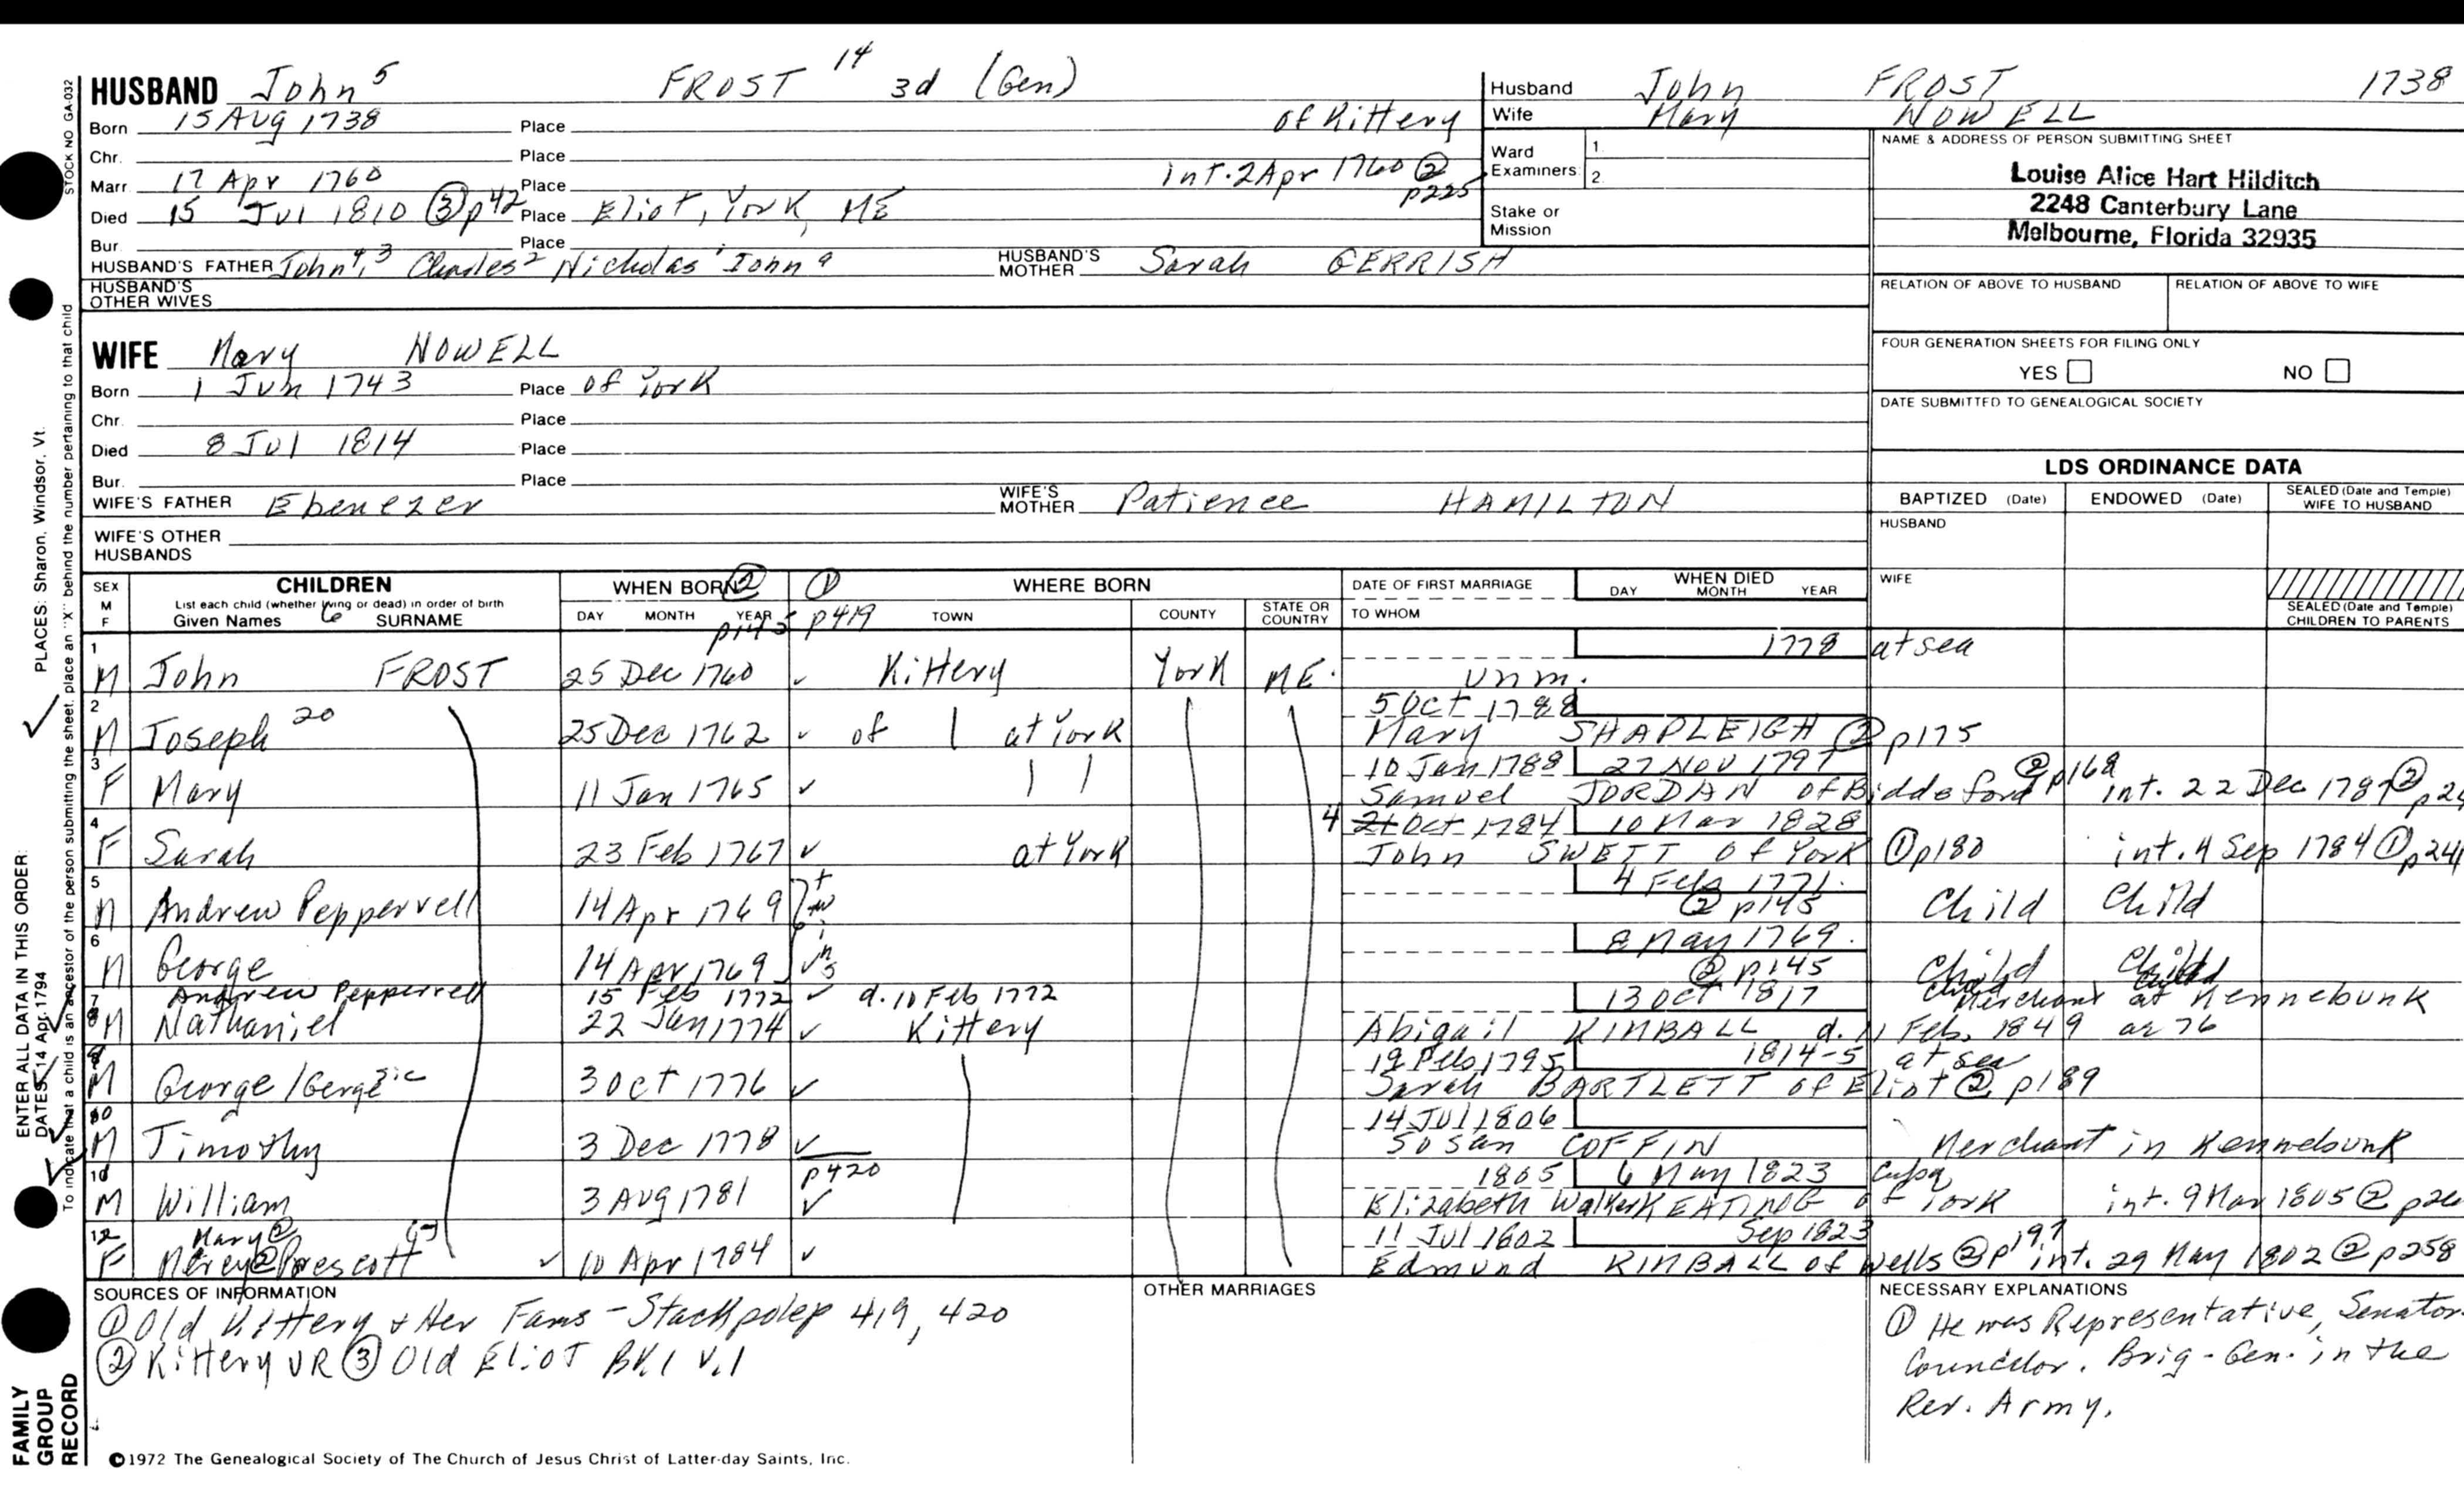 HUSBAND John 5 FROST 14 3d (Gen)
Born 15 AUG 1738 Place of Kittery
Chr. Place
Marr. 17 Apr 1760 Place int. 2 Apr 1760 ② p225
Died 15 Jul 1810 ③ p42 Place Eliot, York, ME
Bur. Place
HUSBAND'S FATHER John 4, 3 Charles 2 Nicholas 1 John a HUSBAND'S MOTHER Sarah GERRISH
HUSBAND'S OTHER WIVES
Husband John FROST 1738
Wife Mary NOWELL
Ward Examiners 1. 2.
Stake or Mission
NAME & ADDRESS OF PERSON SUBMITTING SHEET
Louise Alice Hart Hilditch
2248 Canterbury Lane
Melbourne, Florida 32935
RELATION OF ABOVE TO HUSBAND RELATION OF ABOVE TO WIFE
FOUR GENERATION SHEETS FOR FILING ONLY
YES NO
DATE SUBMITTED TO GENEALOGICAL SOCIETY
WIFE Mary NOWELL
Born 1 Jun 1743 Place of York
Chr. Place
Died 8 Jul 1814 Place
Bur. Place
WIFE'S FATHER Ebenezer WIFE'S MOTHER Patience HAMILTON
WIFE'S OTHER HUSBANDS
LDS ORDINANCE DATA
BAPTIZED (Date) ENDOWED (Date) SEALED (Date and Temple) WIFE TO HUSBAND
HUSBAND
WIFE
SEALED (Date and Temple) CHILDREN TO PARENTS
SEX M F
CHILDREN
List each child (whether living or dead) in order of birth
Given Names 6 SURNAME
WHEN BORN ②
DAY MONTH YEAR p145
① p419 WHERE BORN
TOWN COUNTY STATE OR COUNTRY
DATE OF FIRST MARRIAGE
TO WHOM
WHEN DIED
DAY MONTH YEAR
1778 at sea
1 M John FROST 25 Dec 1760 ✓ Kittery York ME. Unm.
5 Oct 1788
2 M Joseph 20 25 Dec 1762 ✓ of at York Mary SHAPLEIGH ② p175
10 Jan 1788 27 NOV 1797
3 F Mary 11 Jan 1765 ✓ Samuel JORDAN of Biddeford ② p168 int. 22 Dec 1787 ②
4 21 Oct 1784 10 Mar 1828
4 F Sarah 23 Feb 1767 ✓ at York John SWETT of York ① p180 int. 4 Sep 1784 ①
4 Feb 1771.
5 M Andrew Pepperrell 14 Apr 1769 twins ② p145 Child Child
8 May 1769.
6 M George 14 Apr 1769 ✓ ② p145 Child Child
7 Andrew Pepperrell 15 Feb 1772 ✓ d. 18 Feb 1772 13 Oct 1817 Child Child Merchant at Kennebunk
8 M Nathaniel 22 Jan 1774 ✓ Kittery Abigail KIMBALL d. 11 Feb. 1849 ae 76
19 Feb 1795 1814-5 at sea
M George / Gerge sic 3 Oct 1776 ✓ Sarah BARTLETT of Eliot ② p189
14 Jul 1806
10 M Timothy 3 Dec 1778 ✓ Susan COFFIN Merchant in Kennebunk
p420 1805 6 May 1823 Cuba
M William 3 AUG 1781 ✓ Elizabeth Walker KEATING of York int. 9 Mar 1805 ②
Mary ② 11 Jul 1802 Sep 1823
12 F Mercy ② Prescott ✓ 10 Apr 1784 ✓ Edmund KIMBALL of Wells ② p197 int. 29 May 1802 ② p258
SOURCES OF INFORMATION
① Old Kittery & Her Fams - Stackpole p 419, 420
② Kittery VR ③ Old Eliot BK.1 V.1
OTHER MARRIAGES
NECESSARY EXPLANATIONS
① He was Representative, Senator
Councilor. Brig-Gen. in the
Rev. Army.
©1972 The Genealogical Society of The Church of Jesus Christ of Latter-day Saints, Inc.
STOCK NO GA-032
PLACES: Sharon, Windsor, Vt.
ENTER ALL DATA IN THIS ORDER:
DATES: 14 Apr. 1794
To indicate that a child is an ancestor of the person submitting the sheet, place an "X" behind the number pertaining to that child
FAMILY GROUP RECORD